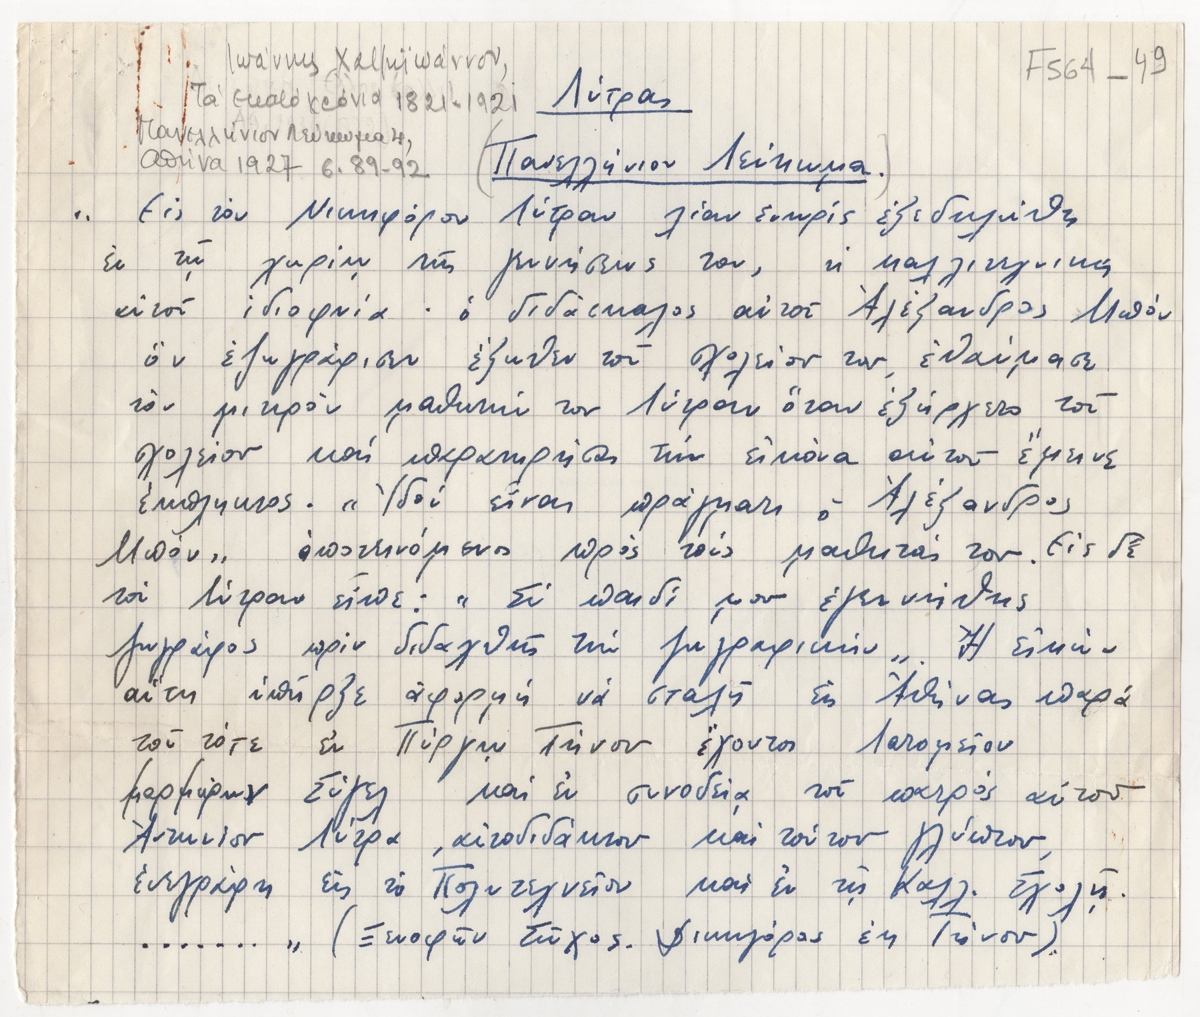 Ιωάννης Χατζηϊωάννου,
Τά εκατόχρονια 1821-1921
Πανελλήνιον Λεύκωμα 4,
Αθήνα 1927 σ. 89-92
F564-49
Λύτρας
(Πανελλήνιον Λεύκωμα.)
„ Εἰς τὸν Νικηφόρον Λύτραν λίαν ἐνωρίς ἐξεδηλώθη
ἐν τῇ χωρίῳ τῆς γεννήσεως του, ἡ καλλιτεχνική
αὐτοῦ ἰδιοφυία · ὁ διδάσκαλος αὐτοῦ Ἀλέξανδρος Μπόν
ὅν ἐζωγράφισεν ἔξωθεν τοῦ σχολείου του, ἐθαύμασε
τὸν μικρὸν μαθητήν του Λύτραν ὅταν ἐξήρχετο τοῦ
σχολείου καί παρατηρήσας τήν εἰκόνα αὐτοῦ ἔμεινε
ἔκπληκτος. „ Ἰδού εἶναι πράγματι ὁ Ἀλέξανδρος
Μπόν„ ἀποτεινόμενος πρός τούς μαθητάς του. Εἰς δέ
τόν Λύτραν εἶπε: „ Σύ παιδί μου ἐγεννήθης
ζωγράφος πρίν διδαχθῇς τήν ζωγραφικήν„. Ἡ εἰκών
αὕτη ὑπῆρξε ἀφορμή νά σταλῇ εἰς Ἀθήνας παρά
τοῦ τότε ἐν Πύργῳ Τήνου ἔχοντος λατομεῖον
μαρμάρων Σίγελ καί ἐν συνοδείᾳ τοῦ πατρός αὐτοῦ
Ἀντωνίου Λύτρα, αὐτοδιδάκτου καί τούτου γλύπτου,
ἐνεγράφη εἰς τό Πολυτεχνεῖον καί ἐν τῇ Καλλ. Σχολῇ.
........ „ (Ξενοφῶν Σῶχος. Δικηγόρος ἐκ Τήνου).